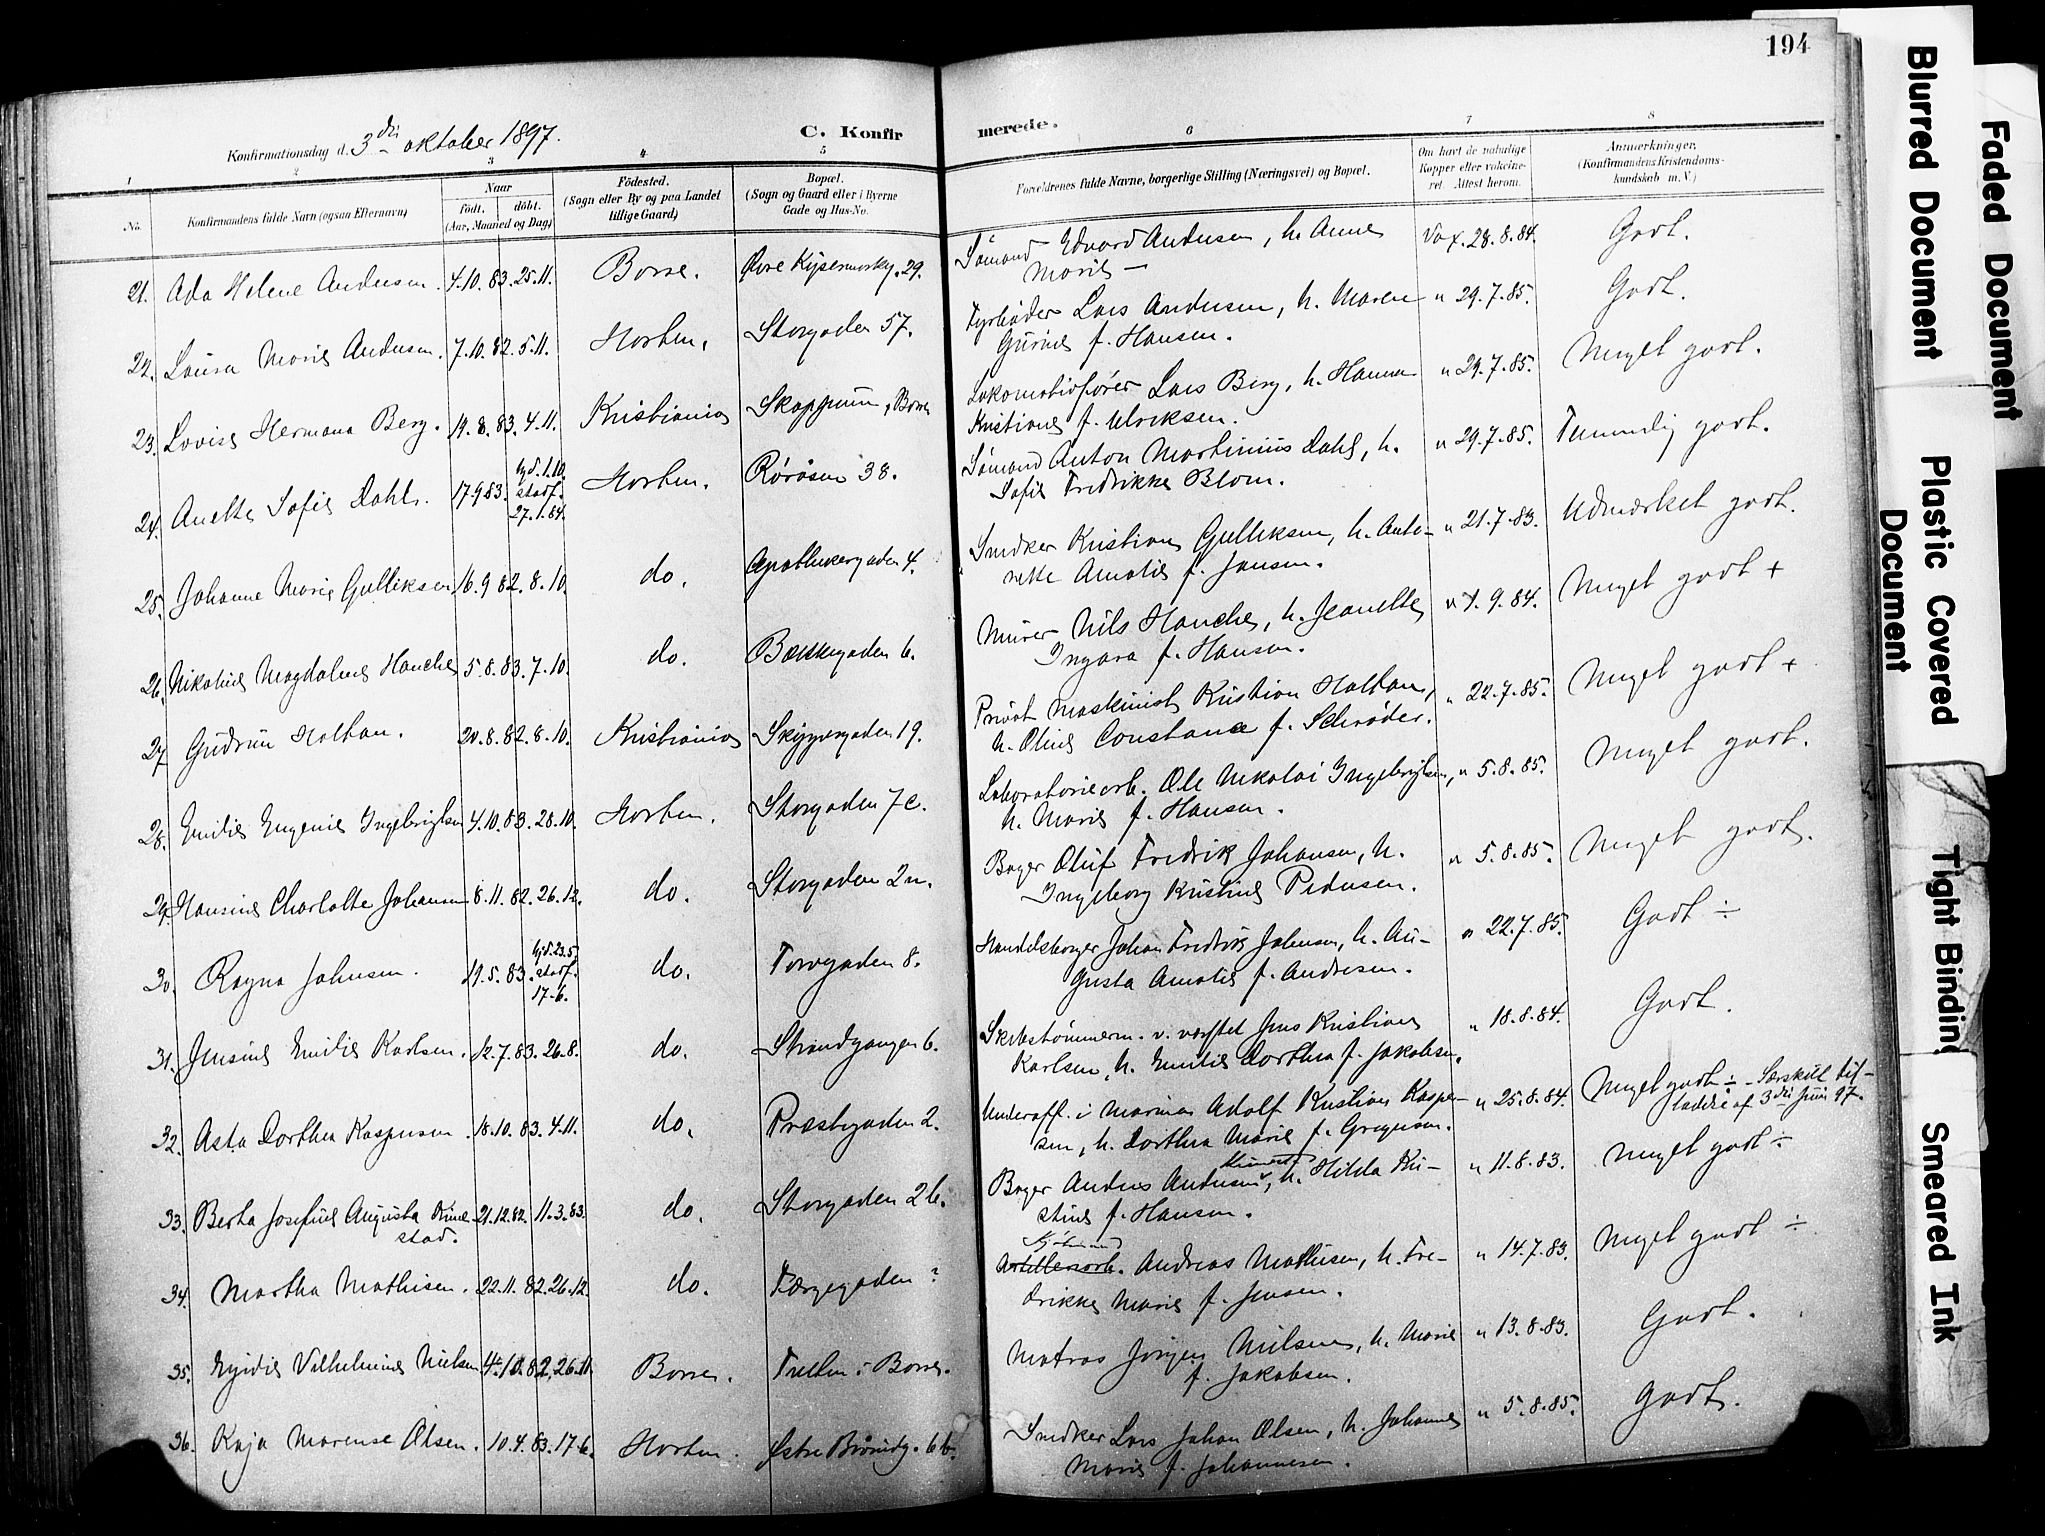 194
Konfirmationsdag d. 3die oktober 1897.
C. Konfir
merede.
1
2
3
4
5
6
7
8
No.
Konfirmandens fulde Navn (ogsaa Efternavn)
Naar
født. døbt.
(Aar, Maaned og Dag)
Födested.
(Sogn eller By og paa Landet
tillige Gaard)
Bopæl.
(Sogn og Gaard eller i Byerne
Gade og Hus-No.
Forældrenes fulde Navne, borgerlige Stilling (Næringsvei) og Bopæl.
Om havt de naturlige
Kopper eller vakcine-
ret. Attest herom.
Anmerkninger.
(Konfirmandens Kristendoms-
kundskab m. V.)
21. Ada Helene Andersen. 4.10.83. 25.11. Borre. 29. Sømand Edvard Andersen, h. Anne
Marie —
Vax. 28.8.84. Godt.
22. Laura Marie Andersen. 7.10.82. 5.11. Horten. Storgaden 57. Fyrbøder Lars Andersen, h. Maren
Gurine f. Hansen.
" 29.7.85. Godt.
23. Lovise Hermana Berg. 19.8.83. 4.11. Kristiania Skoppum, Borre Lokomotivfører Lars Berg, h. Hanna
Kristiane f. Ulriksen.
" 29.7.85. Meget godt.
24. Anette Sofie Dahl. 17.9.83. hjd. 1.10.
stadf.
27.1.84.
Horten. Røråsen 38. Sømand Anton Martinius Dahl, h.
Sofie Fredrikke Blom.
" 29.7.85. Temmelig godt.
25. Johanne Marie Gulliksen 16.9.82. 8.10. do. Apothekergaden 4. Snedker Kristian Gulliksen, h. Anto-
nette Amalie f. Jansen.
" 21.7.83. Udmærket godt.
26. Nikoline Magdalene Hanche 5.8.83. 7.10. do. Bakkegaden 6. Murer Nils Hanche, h. Jeanette
Ingara f. Hansen.
" 1.9.84. Meget godt +
27. Gudrun Holtan. 20.8.82. 8.10. Kristiania Skippergaden 19. Privat maskinist Kristian Holtan,
h. Oline Constance f. Schrøder.
" 22.7.85. Meget godt +
28. Emilie Eugenie Ingebrigtsen 4.10.83. 28.10. Horten. Storgaden 7c. Laboratoriearb. Ole Nikolai Ingebrigtsen,
h. Marie f. Hansen.
" 5.8.85. Meget godt.
29. Hansine Charlotte Johansen 8.11.82. 26.12. do. Storgaden 2n. Bager Oluf Fredrik Johansen, h.
Ingeborg Kristine Pedersen.
" 5.8.85. Meget godt.
30. Ragna Johnsen. 19.5.83. hjd. 23.5.
stadf.
17.6.
do. Torvegaden 8. Handelsborger Johan Fredrik Johnsen, h. Au-
gusta Amalie f. Andresen.
" 22.7.85. Godt ÷
31. Jensine Emilie Karlsen. 12.7.83. 26.8. do. Strandgangen 6. Skibstømmerm. v. værftet Jens Kristian
Karlsen, h. Emilie Dorthea f. Jakobsen.
" 18.8.84. Godt.
32. Asta Dorthea Kaspersen. 18.10.83. 4.11. do. Præstegaden 2. Underoff. i Marinen Adolf Kristian Kasper-
sen, h. Dorthea Marie f. Gregersen.
" 25.8.84. Meget godt ÷ - Særskilt til-
ladelse af 3die Juni 97.
33. Berta Josefine Augusta Kime-
stad.
21.12.82. 11.3.83. do. Storgaden 26. Bager Anders Andersen, h. Hilda Kri-
stine f. Hansen.
" 11.8.83. Meget godt ÷
34. Martha Mathisen. 22.11.82. 26.12. do. Færgegaden ? Artilleriarb. Andreas Mathisen, h. Fre-
drikke Marie f. Jensen.
" 14.7.83. Meget godt ÷
35. Egidie Vilhelmine Nielsen 4.10.82. 26.11. Borre. i Borre. Matros Jørgen Nielsen, h. Marie
f. Jakobsen.
" 13.8.83. Godt.
36. Kaja Marense Olsen. 10.4.83. 17.6. Horten. Østre Braarudg. 6b. Snedker Lars Johan Olsen, h. Johanne
Marie f. Johannesen.
" 5.8.85. Godt.
Faded Document
Blurred Document
Plastic Covered
Document
Tight Binding
Smeared Ink